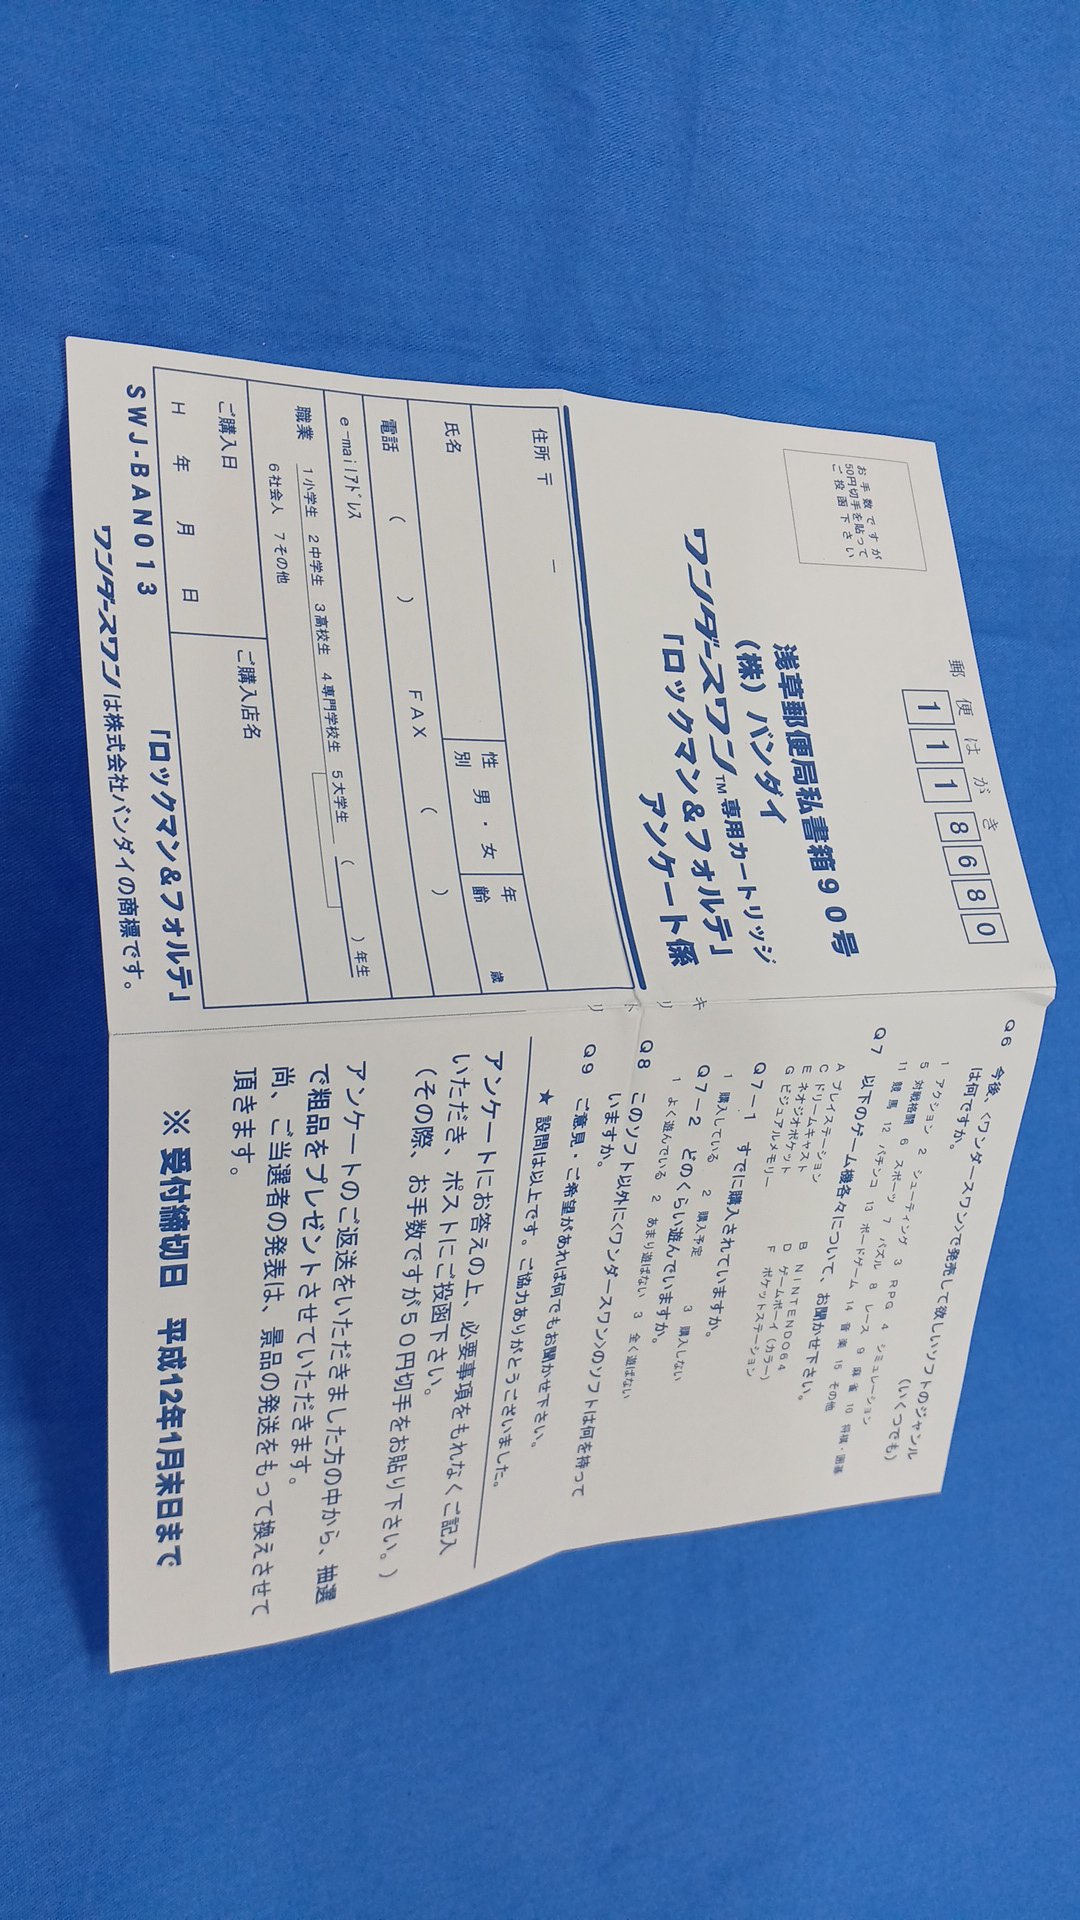 お手数ですが
50円切手を貼って
ご投函下さい
郵便はがき
1118680
浅草郵便局私書箱90号
(株)バンダイ
ワンダースワン™専用カートリッジ
「ロックマン&フォルテ」
アンケート係
住所 〒 －
氏名
性別 男・女
年齢 歳
電話 ( ) FAX ( )
e-mailアドレス
職業 1小学生 2中学生 3高校生 4専門学校生 5大学生 ( )年生
6社会人 7その他
ご購入日
H 年 月 日
ご購入店名
SWJ-BAN013 「ロックマン&フォルテ」
ワンダースワンは株式会社バンダイの商標です。
キリトリ
Q6 今後、〈ワンダースワン〉で発売して欲しいソフトのジャンル
は何ですか。 (いくつでも)
1 アクション 2 シューティング 3 RPG 4 シミュレーション
5 対戦格闘 6 スポーツ 7 パズル 8 レース 9 麻雀 10 将棋・囲碁
11 競馬 12 パチンコ 13 ボードゲーム 14 音楽 15 その他
Q7 以下のゲーム機各々について、お聞かせ下さい。
A プレイステーション B NINTENDO64
C ドリームキャスト D ゲームボーイ(カラー)
E ネオジオポケット F ポケットステーション
G ビジュアルメモリー
Q7－1 すでに購入されていますか。
1 購入している 2 購入予定 3 購入しない
Q7－2 どのくらい遊んでいますか。
1 よく遊んでいる 2 あまり遊ばない 3 全く遊ばない
Q8 このソフト以外に〈ワンダースワン〉のソフトは何を持って
いますか。
Q9 ご意見・ご希望があれば何でもお聞かせ下さい。
★ 設問は以上です。ご協力ありがとうございました。
アンケートにお答えの上、必要事項をもれなくご記入
いただき、ポストにご投函下さい。
(その際、お手数ですが50円切手をお貼り下さい。)
アンケートのご返送をいただきました方の中から、抽選
で粗品をプレゼントさせていただきます。
尚、ご当選者の発表は、景品の発送をもって換えさせて
頂きます。
※ 受付締切日 平成12年1月末日まで